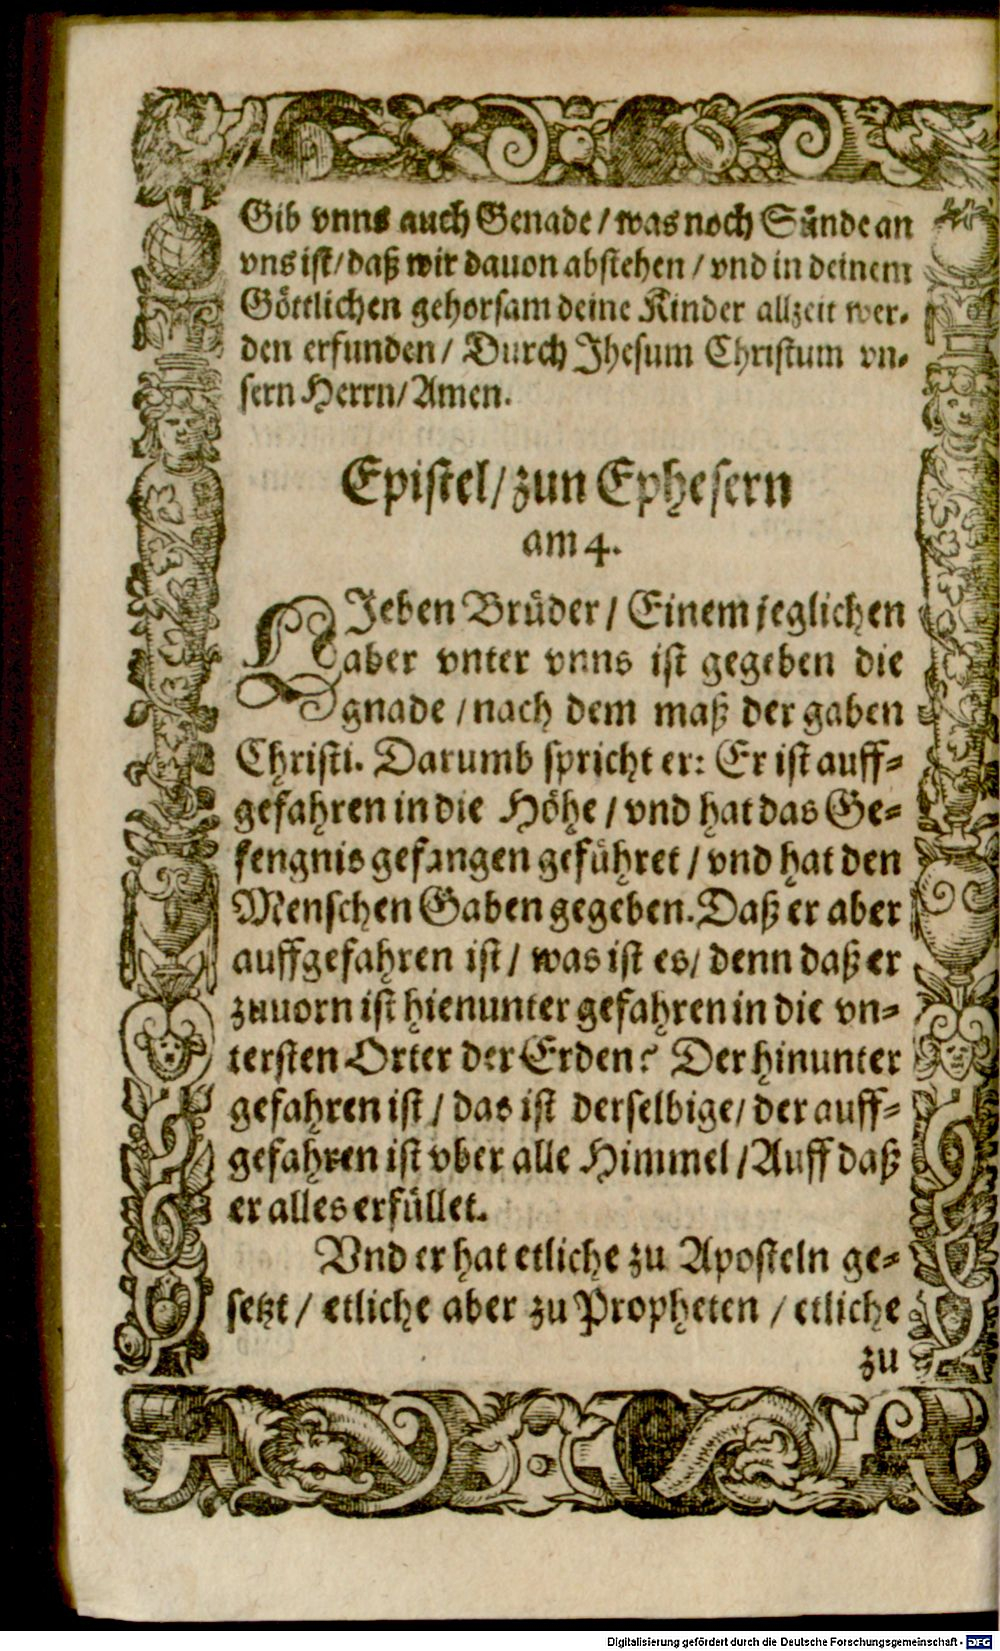 Gib vnns auch Genade / was noch Sünde an
vns ist / daß wir dauon abstehen / vnd in deinem
Göttlichen gehorsam deine Kinder allzeit wer-
den erfunden / Durch Jhesum Christum vn-
sern Herrn / Amen.
Epistel / zun Ephesern
am 4.
LJeben Brüder / Einem jeglichen
aber vnter vnns ist gegeben die
gnade / nach dem maß der gaben
Christi. Darumb spricht er: Er ist auff-
gefahren in die Höhe / vnd hat das Ge-
fengnis gefangen geführet / vnd hat den
Menschen Gaben gegeben. Daß er aber
auffgefahren ist / was ist es / denn daß er
zuuorn ist hienunter gefahren in die vn-
tersten Orter der Erden? Der hinunter
gefahren ist / das ist derselbige / der auff-
gefahren ist vber alle Himmel / Auff daß
er alles erfüllet.
Vnd er hat etliche zu Aposteln ge-
setzt / etliche aber zu Propheten / etliche
zu
Digitalisierung gefördert durch die Deutsche Forschungsgemeinschaft - DFG